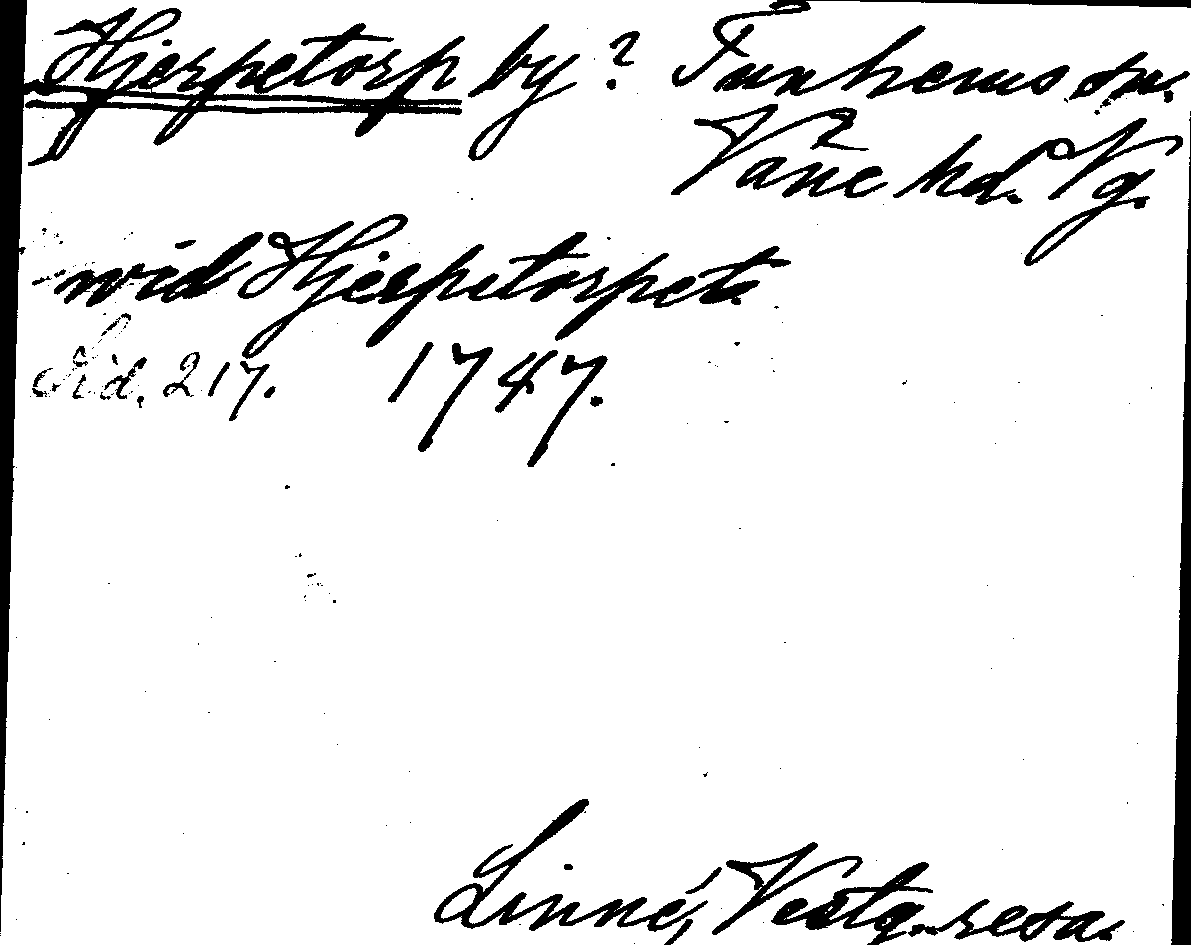 Hjerpetorp by? Tunhems sn.
Väne hd. Vg.
wid Hjerpetorpet.
Sid. 217. 1747.
Linné, Vestg. resa.